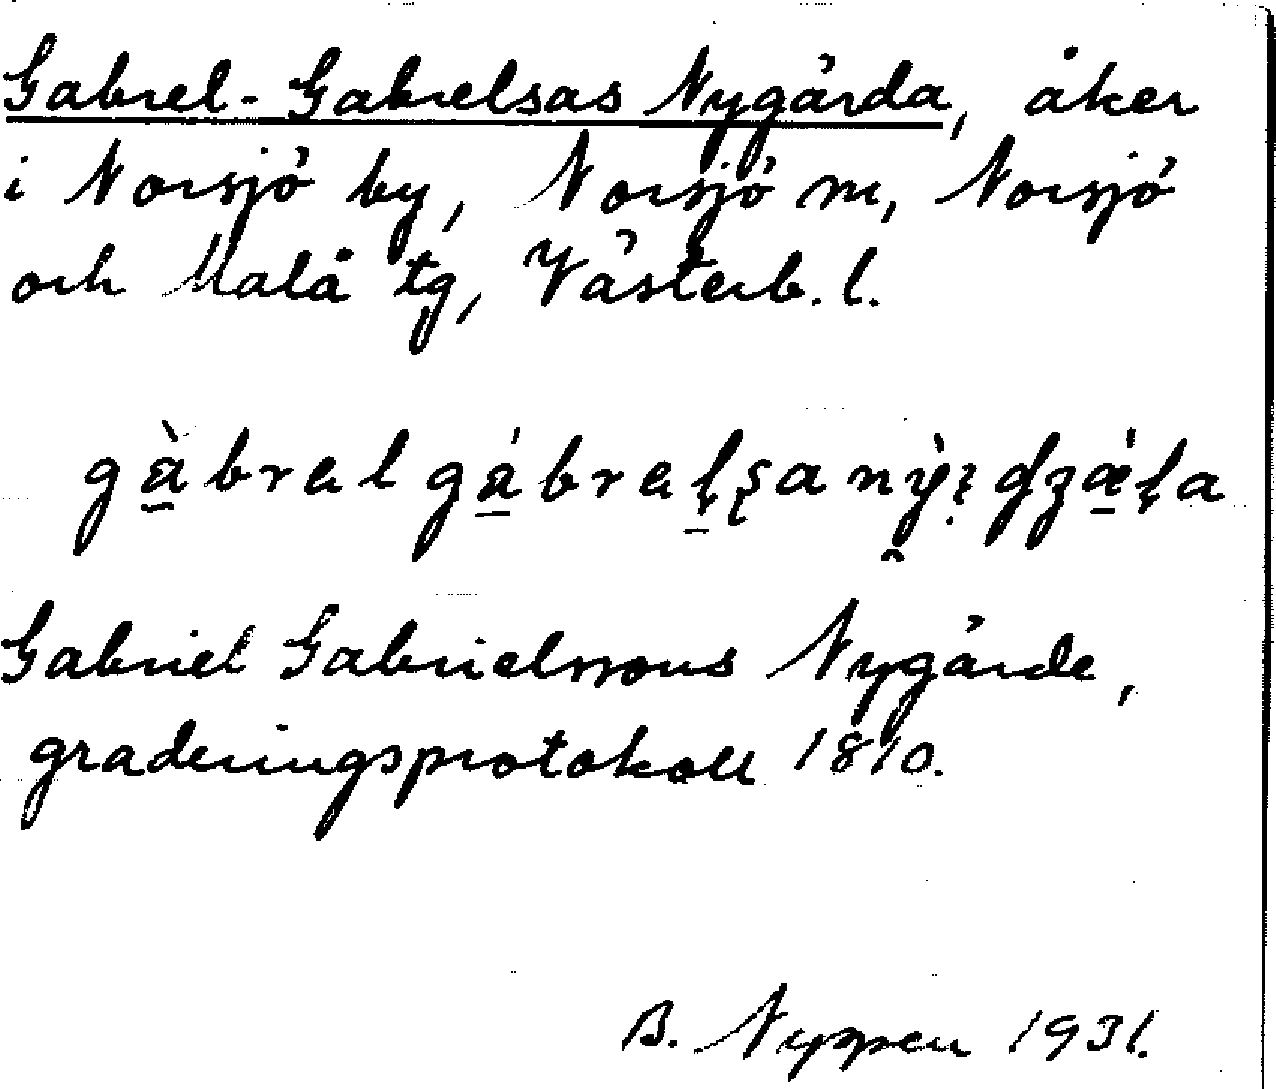 Gabriel-Gabrielsas Nygårda, åker
i Norsjö by, Norsjö sn, Norsjö
och Malå tg, Västerb. l.
Gabriel Gabrielssons Nygårde,
graderingsprotokoll 1810.
B. Nyman 1931.